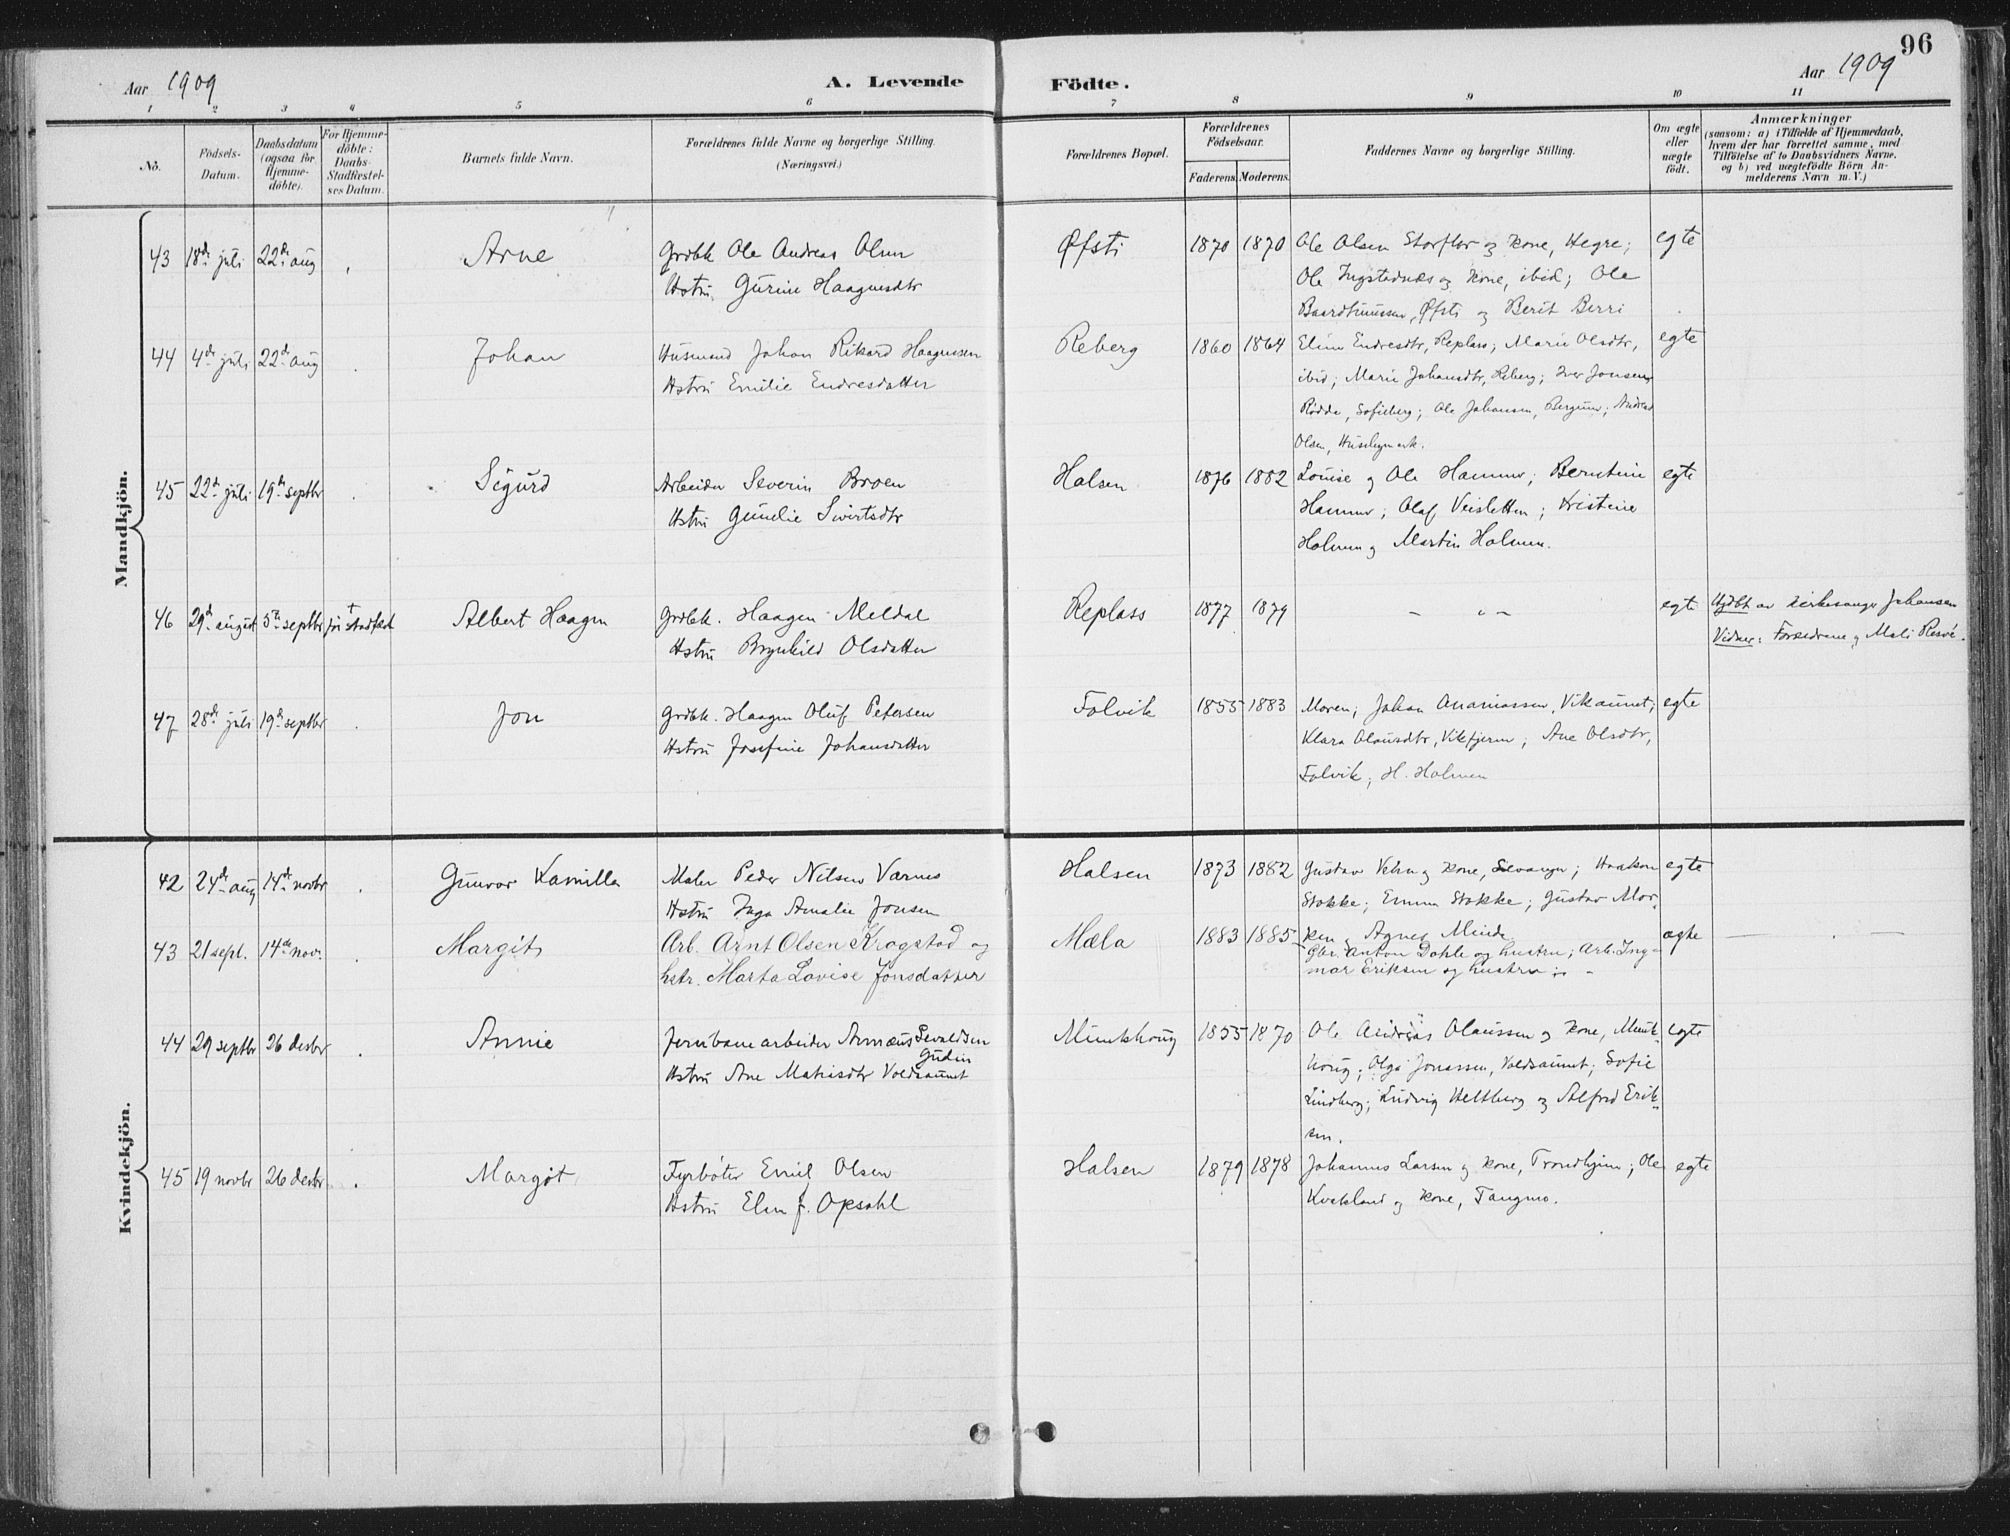 96
Aar 1909
A. Levende Födte.
Aar 1909
1 2 3 4 5 6 7 8 9 10 11
No.
Födsels-Datum.
Daabsdatum (ogsaa for Hjemme-döbte).
For Hjemme-döbte: Daabs-Stadfæstel-ses Datum.
Barnets fulde Navn.
Forældrenes fulde Navne og borgerlige Stilling.
(Næringsvei.)
Forældrenes Bopæl.
Forældrenes Födselsaar.
Faderens. Moderens.
Faddernes Navne og borgerlige Stilling.
Om ægte eller uægte födt.
Anmærkninger
(saasom: a) i Tilfælde af Hjemmedaab,
hvem der har forrettet samme, med
Tilföielse af to Daabsvidners Navne.
og b) ved uægtefödte Börn An-
melderens Navn m. V.)
Mandkjön.
43 18de juli 22de aug Arne Grdbk Ole Andreas Olsen Øfsti 1870 1870 Ole Olsen Storflor og kone, Hegre; egte
Hstru Gurine Haagensdtr Ole Ingstadnæs og kone, ibid; Ole
Øfsti og Berit Berri
44 4de juli 22de aug Johan Husmand Johan Rikard Haagensen Reberg 1860 1864 Endresdtr, Replass; Marie Olsdtr, egte
Hstru Emilie Endresdatter ibid; Marie Johansdtr, Reberg; Iver Jonsen
Rødde, Sofieberg; Ole Johansen, Bergum; Andreas
Olsen, Husebymark.
45 22d juli 19de septbr Sigurd Arbeider Severin Broen Halsen 1876 1882 Louise og Ole Hammer; Berntine egte
Hstru Gunelie Sivertsdtr Hammer; Olaf Veisletten; Kristine
Holmen og Martin Holmen.
46 29d august 5te septbr † før stadfæst Albert Haagen Grdbk. Haagen Meldal Replass 1877 1879 — " — egte Hjdbt av kirkesanger Johansen
Hstru Brynhild Olsdatter Vidner: Forældrene og Mali Resvé.
47 28de juli 19de septbr Jon Grdbk. Haagen Oluf Petersen Folvik 1855 1883 Moren; Johan Ananiassen, Vikaunet; egte
Hstru Josefine Johansdatter Klara Olausdtr, Vikfjeren; Ane Olsdtr,
Folvik; H. Holmen
Kvindekjön.
42 24de aug 14de novbr Gunvor Kamilla Maler Peder Nilsen Værnes Halsen 1873 1882 Gustav og kone, Levanger; Haakon egte
Hstru Inga Amalie Jonsen Stokke; Emma Stokke; Gustav Mor-
43 21 sept. 14de nov. Margit Arb. Arnt Olsen Krogstad og Mæla 1883 1885 ken og Agnes Minde. ægte
hstr. Marta Lovise Jonsdatter Gbr. Anton Dahle og hustru; Arb. Ing-
mar Eriksen og hustru
44 29 septbr 26 decbr Annie Jernbanearbeider Annæus Sevaldsen Gudin Munkhaug 1855 1870 Ole Andreas Olaussen og kone, Munk- egte
Hstru Ane Matisdtr Voldsaunet haug; Olga Jonassen, Voldsaunet; Sofie
Lindberg; Ludvig Heltberg og Alfred Erik-
sen.
45 19 novbr 26 decbr Margot Fyrbøter Emil Olsen Halsen 1879 1878 Johannes Larsen og kone, Trondhjem; Ole egte
Hstru Elen f. Opsahl Kvekland og kone, Tangmo.